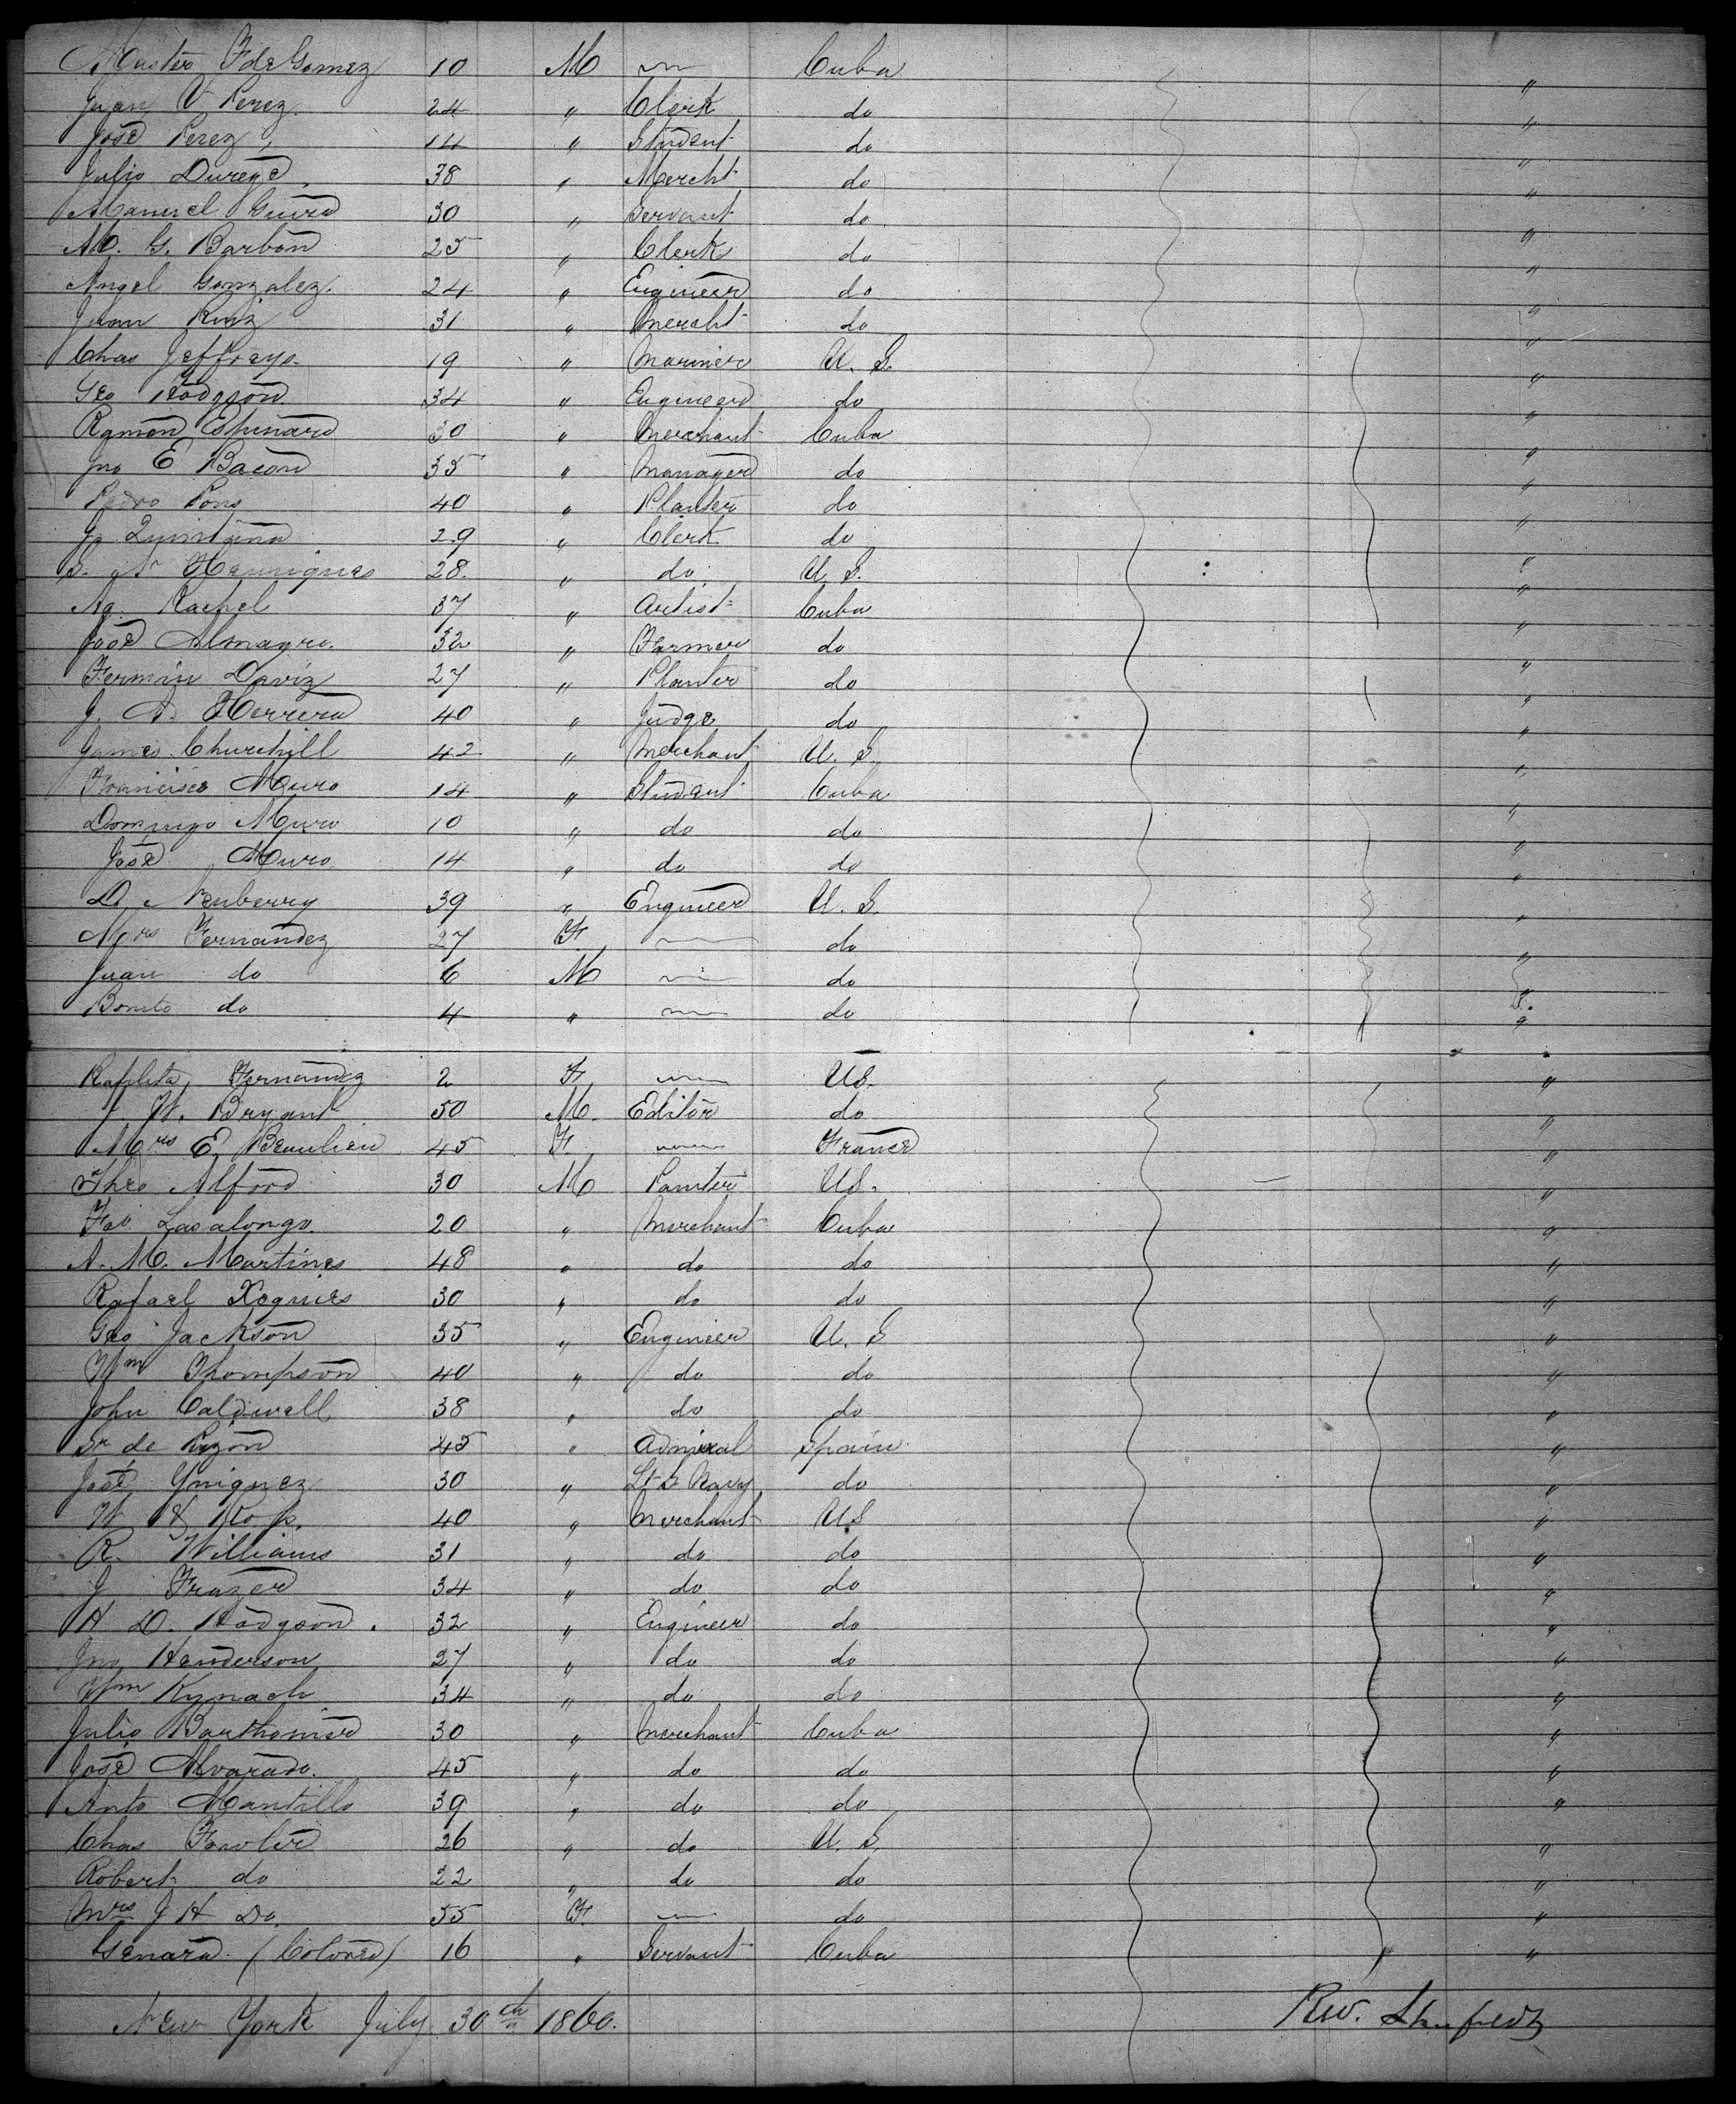 Master F de Gomez 10 M Cuba "
Juan V Perez 24 " Clerk do "
José Perez 14 " Student do "
Julio 38 " Mercht do "
Manuel 30 " Servant do "
M. G. Barbon 25 " Clerk do "
Angel Gonzalez. 24 " Engineer do "
Juan Ruiz 31 " Mercht do "
Chas Jeffreys. 19 " Mariner U. S. "
Geo Hodgson 34 " Engineer do "
Ramon 30 " Merchant Cuba "
Jno E Bacon 35 " Manager do "
Pedro Pons 40 " Planter do "
J. Quintana 29 " Clerk do "
S. N Henriques 28. " do U. S. "
37 " Artist Cuba "
José Almagro. 32 " Farmer do "
Fermin Daviz 27 " Planter do "
J. A. Herrera 40 " Judge do "
James Churchill 42 " Merchant U. S. "
Francisco Muro 14 " Student Cuba "
Domingo Muro 10 " do do "
José Muro 14 " do do "
D. Newberry 39 " Engineer U. S. "
Mrs Fernandez 27 F. do "
Juan do 6 M do "
Benito do 4 " do "
Fernandez 2 F US. "
W. Bryant 50 M. Editor do "
Mrs E. Beaulieu 45 F. France "
Theo Alford 30 M Painter US. "
20 " Merchant Cuba "
A. M. Martines 48 " do do "
Rafael 30 " do do "
Geo Jackson 35 " Engineer U. S "
Wm Thompson 40 " do do "
John Caldwell 38 " do do "
Sr de 45 " Admiral Spain "
José Yniguez 30 " Lt S. Navy do "
W 40 " Merchant US "
R. Williams 31 " do do "
J Frazer 34 " do do "
H D. Hodgson. 32 " Engineer do "
Jno Henderson 27 " do do "
Wm 34 " do do "
Julio 30 " Merchant Cuba "
José Alvarado. 45 " do do "
Anto Mantilla 39 " do do "
Chas Fowler 26 " do U. S. "
Robert do 22 " do do "
Mrs J H Do. 55 F. do "
Genara (Colored) 16 " Servant Cuba "
New York July 30th 1860. Rw. Shufeldt